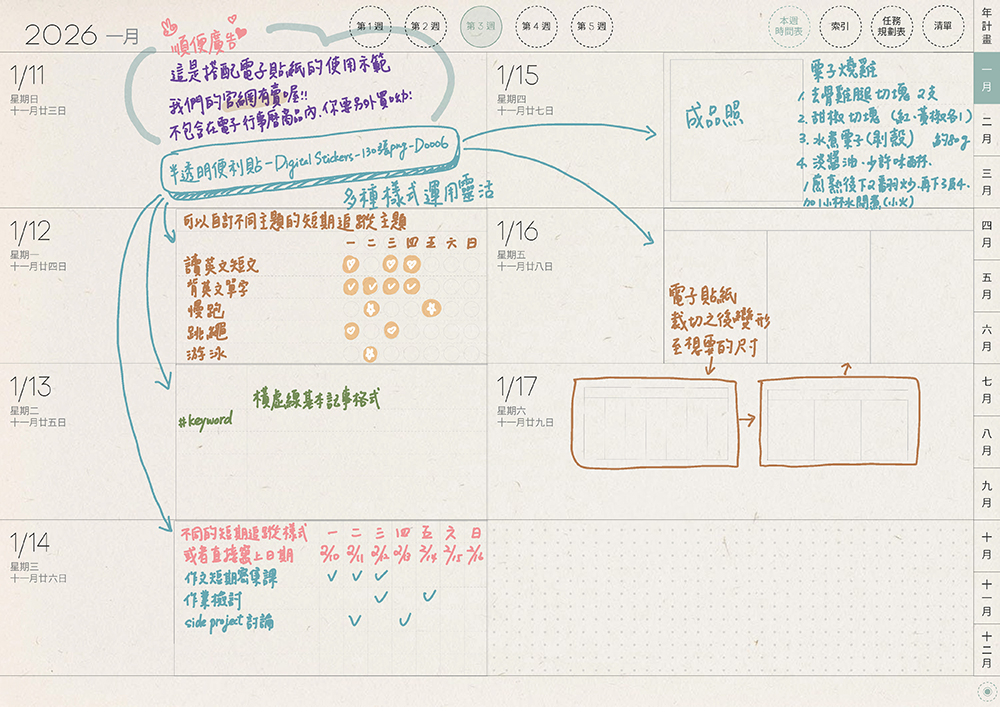 2026 一月
第1週
第2週
第3週
第4週
第5週
本週
時間表
索引
任務
規劃表
清單
年計畫
一月
二月
三月
四月
五月
六月
七月
八月
九月
十月
十一月
十二月
順便廣告
這是搭配電子貼紙的使用示範
我們的官網有賣喔!!
不包含在電子行事曆商品內,你要另外買ㄉㄡ!
半透明便利貼-Digital Stickers-130張png-D0006
多種樣式運用靈活
1/11
星期日
十一月廿三日
1/12
星期一
十一月廿四日
可以自訂不同主題的短期追蹤主題
一 二 三 四 五 六 日
讀英文短文
背英文單字
慢跑
跳繩
游泳
1/13
星期二
十一月廿五日
橫虛線基本記事格式
#keyword
1/14
星期三
十一月廿六日
不同的短期追蹤樣式
或者直接寫上日期
一 二 三 四 五 六 日
2/10 2/11 2/12 2/13 2/14 2/15 2/16
作文短期密集課
作業檢討
side project 討論
1/15
星期四
十一月廿七日
成品照
栗子燒雞
1. 去骨雞腿切塊 2支
2. 甜椒切塊 (紅.黃椒各1)
3. 水煮栗子(剝殼) 約80g
4. 淡醬油.少許味醂.
1煎熟後下2翻炒.再下3&4.
加1小杯水悶煮(小火)
1/16
星期五
十一月廿八日
電子貼紙
裁切之後變形
至想要的尺寸
1/17
星期六
十一月廿九日